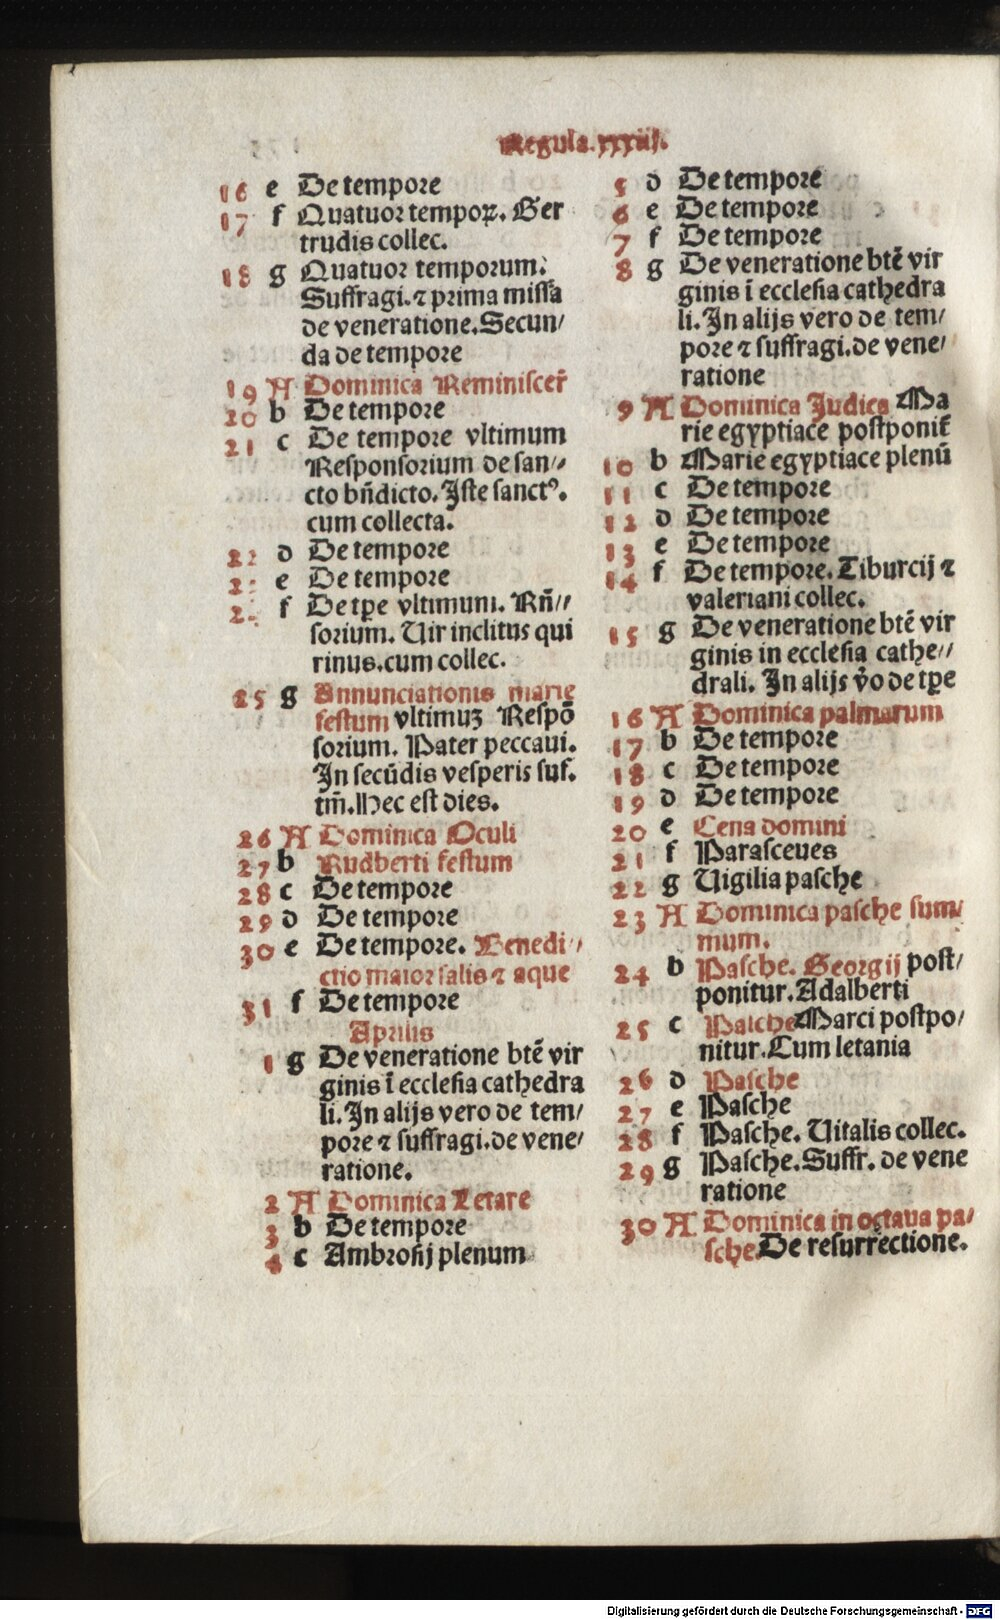 Regula.xxxiij.
16 e De tempore
17 f Quatuor tempoꝝ. Ger
trudis collec.
18 g Quatuor temporum.
Suffragi. ⁊ prima missa
de veneratione. Secun/
da de tempore
19 A Dominica Reminiscer̄
20 b De tempore
21 c De tempore vltimum
Responsorium de san//
cto bn̄dicto. Iste sanctꝰ.
cum collecta.
22 d De tempore
e De tempore
f De tꝑe vltimum. Rn̄//
sorium. Uir inclitus qui
rinus. cum collec.
25 g Annunciationis marie
festum vltimuꝫ Respō
sorium. Pater peccaui.
In secūdis vesperis suf.
tm̄. Hec est dies.
26 A Dominica Oculi
27 b Rudberti festum
28 c De tempore
29 d De tempore
30 e De tempore. Benedi//
ctio maior salis ⁊ aque
31 f De tempore
Aprilis
1 g De veneratione btē vir
ginis ī ecclesia cathedra
li. In alijs vero de tem/
pore ⁊ suffragi. de vene/
ratione.
2 A Dominica Letare
3 b De tempore
4 c Ambrosij plenum
5 d De tempore
6 e De tempore
7 f De tempore
8 g De veneratione btē vir
ginis ī ecclesia cathedra
li. In alijs vero de tem/
pore ⁊ suffragi. de vene/
ratione
9 A Dominica Judica Ma
rie egyptiace postponit̄
10 b Marie egyptiace plenū
11 c De tempore
12 d De tempore
13 e De tempore
14 f De tempore. Tiburcij ⁊
valeriani collec.
15 g De veneratione btē vir
ginis in ecclesia cathe//
drali. In alijs v̄o de tꝑe
16 A Dominica palmarum
17 b De tempore
18 c De tempore
19 d De tempore
20 e Cena domini
21 f Parasceues
22 g Uigilia pasche
23 A Dominica pasche sum/
mum.
24 b Pasche. Georgij post/
ponitur. Adalberti
25 c Pasche Marci postpo/
nitur. Cum letania
26 d Pasche
27 e Pasche
28 f Pasche. Uitalis collec.
29 g Pasche. Suffr. de vene
ratione
30 A Dominica in octaua pa/
sche. De resurrectione.
Digitalisierung gefördert durch die Deutsche Forschungsgemeinschaft - DFG